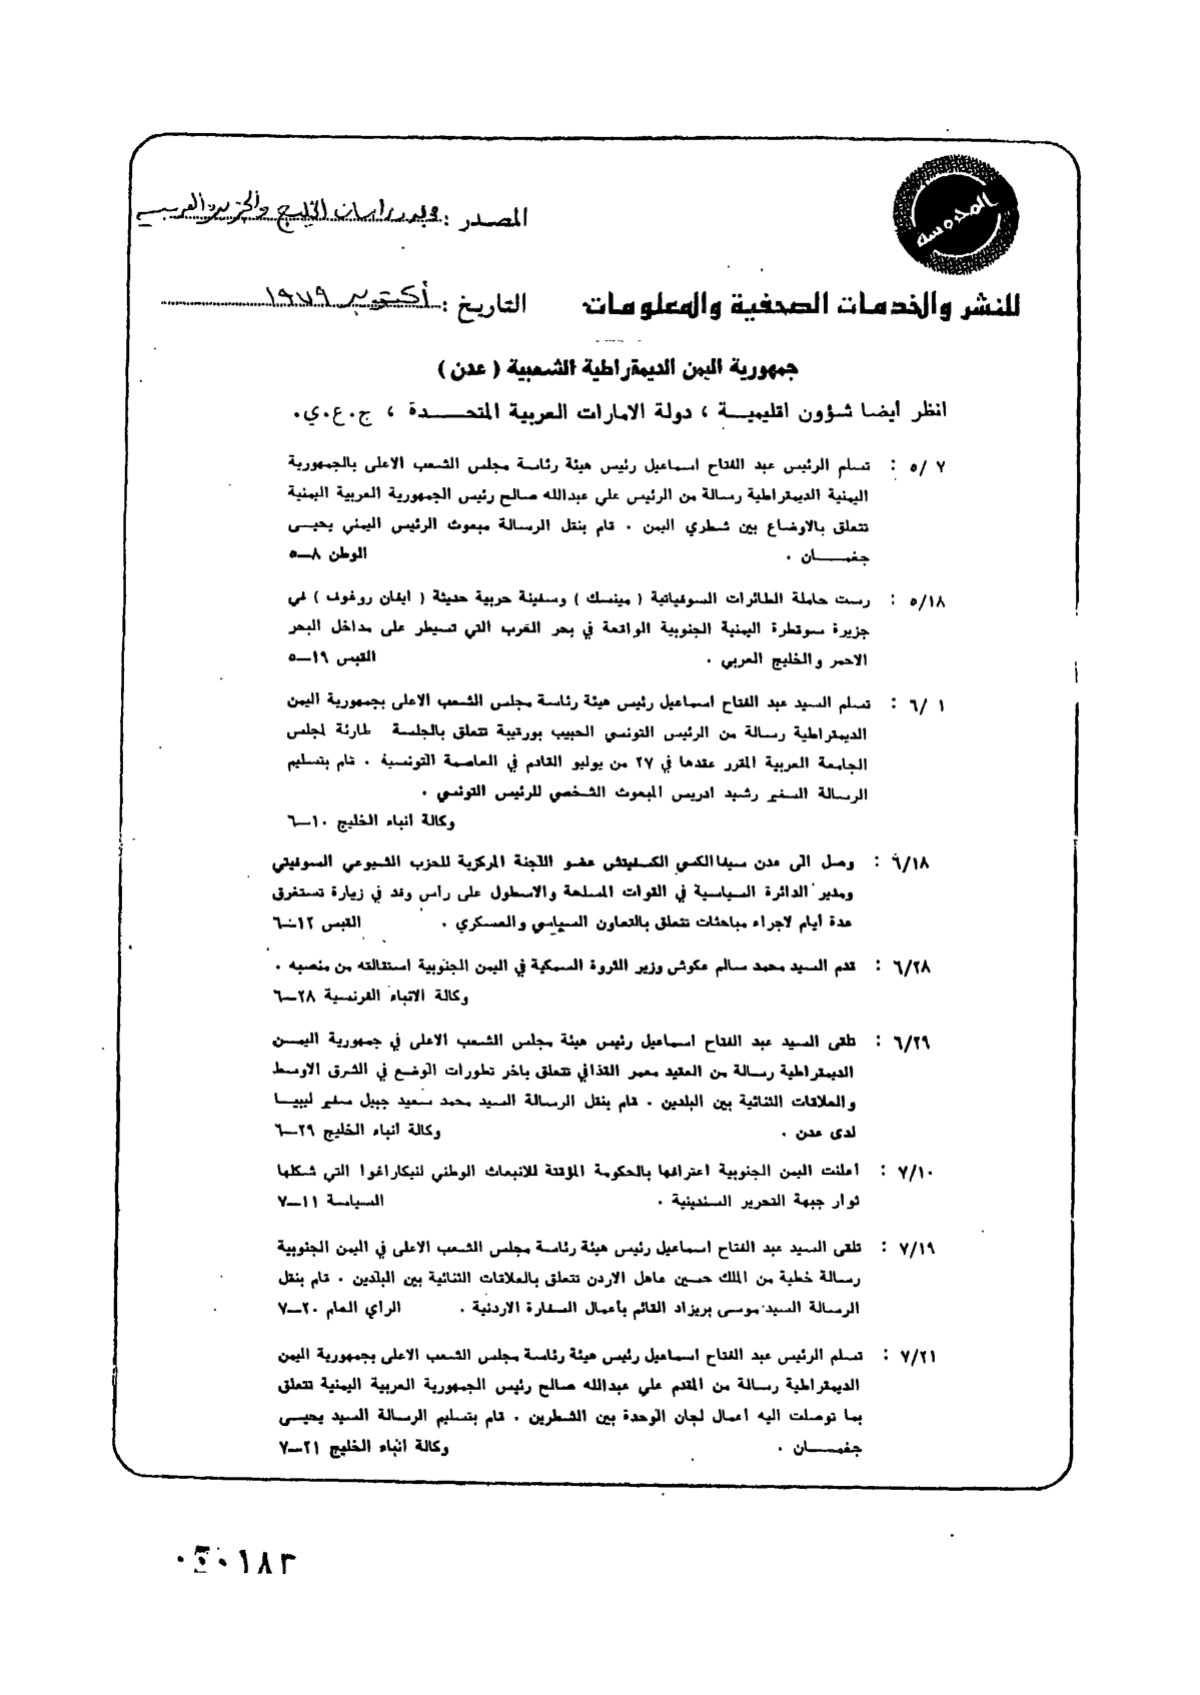 المحروسه
المصدر : مجلة دراسات الخليج والجزيرة العربية
للنشر والخدمات الصحفية والمعلومات
التاريخ : أكتوبر ١٩٧٩
جمهورية اليمن الديمقراطية الشعبية ( عدن )
انظر أيضا شؤون اقليمية ، دولة الامارات العربية المتحدة ، ج.ع.ي.
٥/ ٧ : تسلم الرئيس عبد الفتاح اسماعيل رئيس هيئة رئاسة مجلس الشعب الاعلى بالجمهورية
اليمنية الديمقراطية رسالة من الرئيس علي عبدالله صالح رئيس الجمهورية العربية اليمنية
تتعلق بالاوضاع بين شطري اليمن . قام بنقل الرسالة مبعوث الرئيس اليمني يحيى
جغمان . الوطن ٨—٥
٥/١٨ : رست حاملة الطائرات السوفياتية ( مينسك ) وسفينة حربية حديثة ( ايفان روغوف ) في
جزيرة سوقطرة اليمنية الجنوبية الواقعة في بحر العرب التي تسيطر على مداخل البحر
الاحمر والخليج العربي . القبس ١٩—٥
٦/ ١ : تسلم السيد عبد الفتاح اسماعيل رئيس هيئة رئاسة مجلس الشعب الاعلى بجمهورية اليمن
الديمقراطية رسالة من الرئيس التونسي الحبيب بورقيبة تتعلق بالجلسة طارئة لمجلس
الجامعة العربية المقرر عقدها في ٢٧ من يوليو القادم في العاصمة التونسية . قام بتسليم
الرسالة السفير رشيد ادريس المبعوث الشخصي للرئيس التونسي .
وكالة انباء الخليج ١٠—٦
٦/١٨ : وصل الى عدن سيفا الكسي الكسفيتش عضو اللجنة المركزية للحزب الشيوعي السوفيتي
ومدير الدائرة السياسية في القوات المسلحة والاسطول على رأس وفد في زيارة تستغرق
عدة أيام لاجراء مباحثات تتعلق بالتعاون السياسي والعسكري . القبس ١٢—٦
٦/٢٨ : قدم السيد محمد سالم عكوش وزير الثروة السمكية في اليمن الجنوبية استقالته من منصبه .
وكالة الانباء الفرنسية ٢٨—٦
٦/٢٩ : تلقى السيد عبد الفتاح اسماعيل رئيس هيئة مجلس الشعب الاعلى في جمهورية اليمن
الديمقراطية رسالة من العقيد معمر القذافي تتعلق باخر تطورات الوضع في الشرق الاوسط
والعلاقات الثنائية بين البلدين . قام بنقل الرسالة السيد محمد سعيد جبيل سفير ليبيا
لدى عدن . وكالة انباء الخليج ٢٩—٦
٧/١٠ : أعلنت اليمن الجنوبية اعترافها بالحكومة المؤقتة للانبعاث الوطني لنيكاراغوا التي شكلها
ثوار جبهة التحرير السندينية . السياسة ١١—٧
٧/١٩ : تلقى السيد عبد الفتاح اسماعيل رئيس هيئة رئاسة مجلس الشعب الاعلى في اليمن الجنوبية
رسالة خطية من الملك حسين عاهل الاردن تتعلق بالعلاقات الثنائية بين البلدين . قام بنقل
الرسالة السيد موسى بريزاد القائم بأعمال السفارة الاردنية . الراي العام ٢٠—٧
٧/٢١ : تسلم الرئيس عبد الفتاح اسماعيل رئيس هيئة رئاسة مجلس الشعب الاعلى بجمهورية اليمن
الديمقراطية رسالة من المقدم علي عبدالله صالح رئيس الجمهورية العربية اليمنية تتعلق
بما توصلت اليه أعمال لجان الوحدة بين الشطرين . قام بتسليم الرسالة السيد يحيى
جغمان . وكالة انباء الخليج ٢١—٧